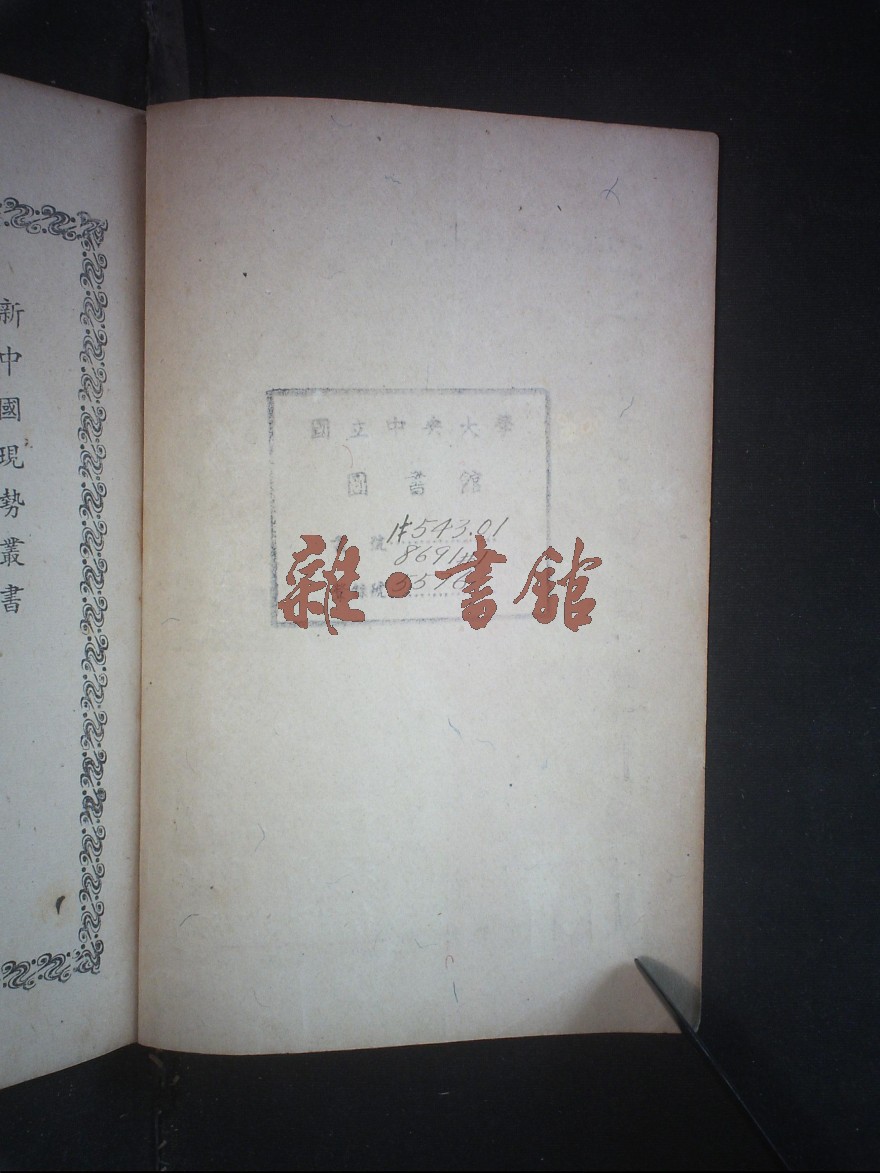 新中國現勢叢書
國立中央大學
圖書館
號 #543.01
8691
雜·書館